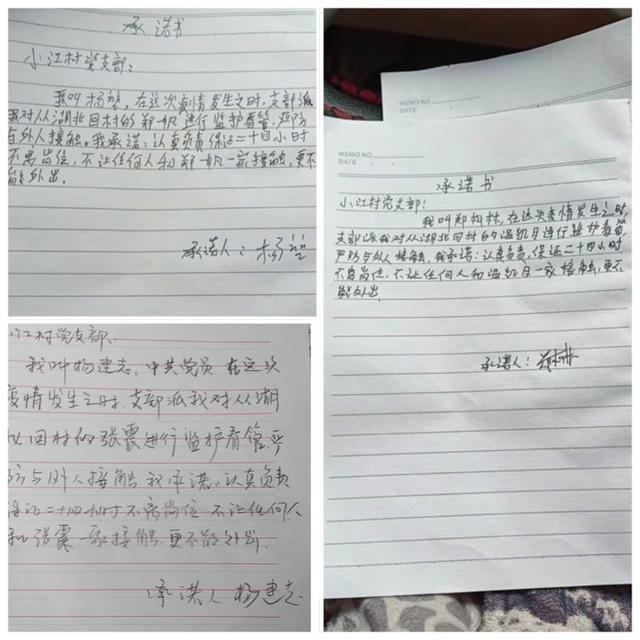 承诺书
小江村党支部：
我叫杨堃，在这次病情发生之时，支部派
我对从湖北回村的郑帆进行监护看管，严防
与外人接触。我承诺：认真负责保证二十四小时
不离岗位，不让任何人和郑帆一家接触，更不
能外出。
承诺人：杨堃
江村党支部、
我叫杨建志，中共党员 在这次
疫情发生之时 支部派我对从湖
北回村的张震进行监护看管，严
防与外人接触 我承诺：认真负责
保证二十四小时不离岗位 不让任何人
和张震一家接触 更不能外出。
承诺人 杨建志
MEMO NO.
DATE
MEMO NO.
DATE
承诺书
小江村党支部！
我叫郑松林，在这次疫情发生之时，
支部派我对从湖北回村的温凯月进行监护看管，
严防与外人接触，我承诺：认真负责，保证二十四小时
不离岗位，不让任何人和温凯月一家接触，更不
能外出
承诺人：